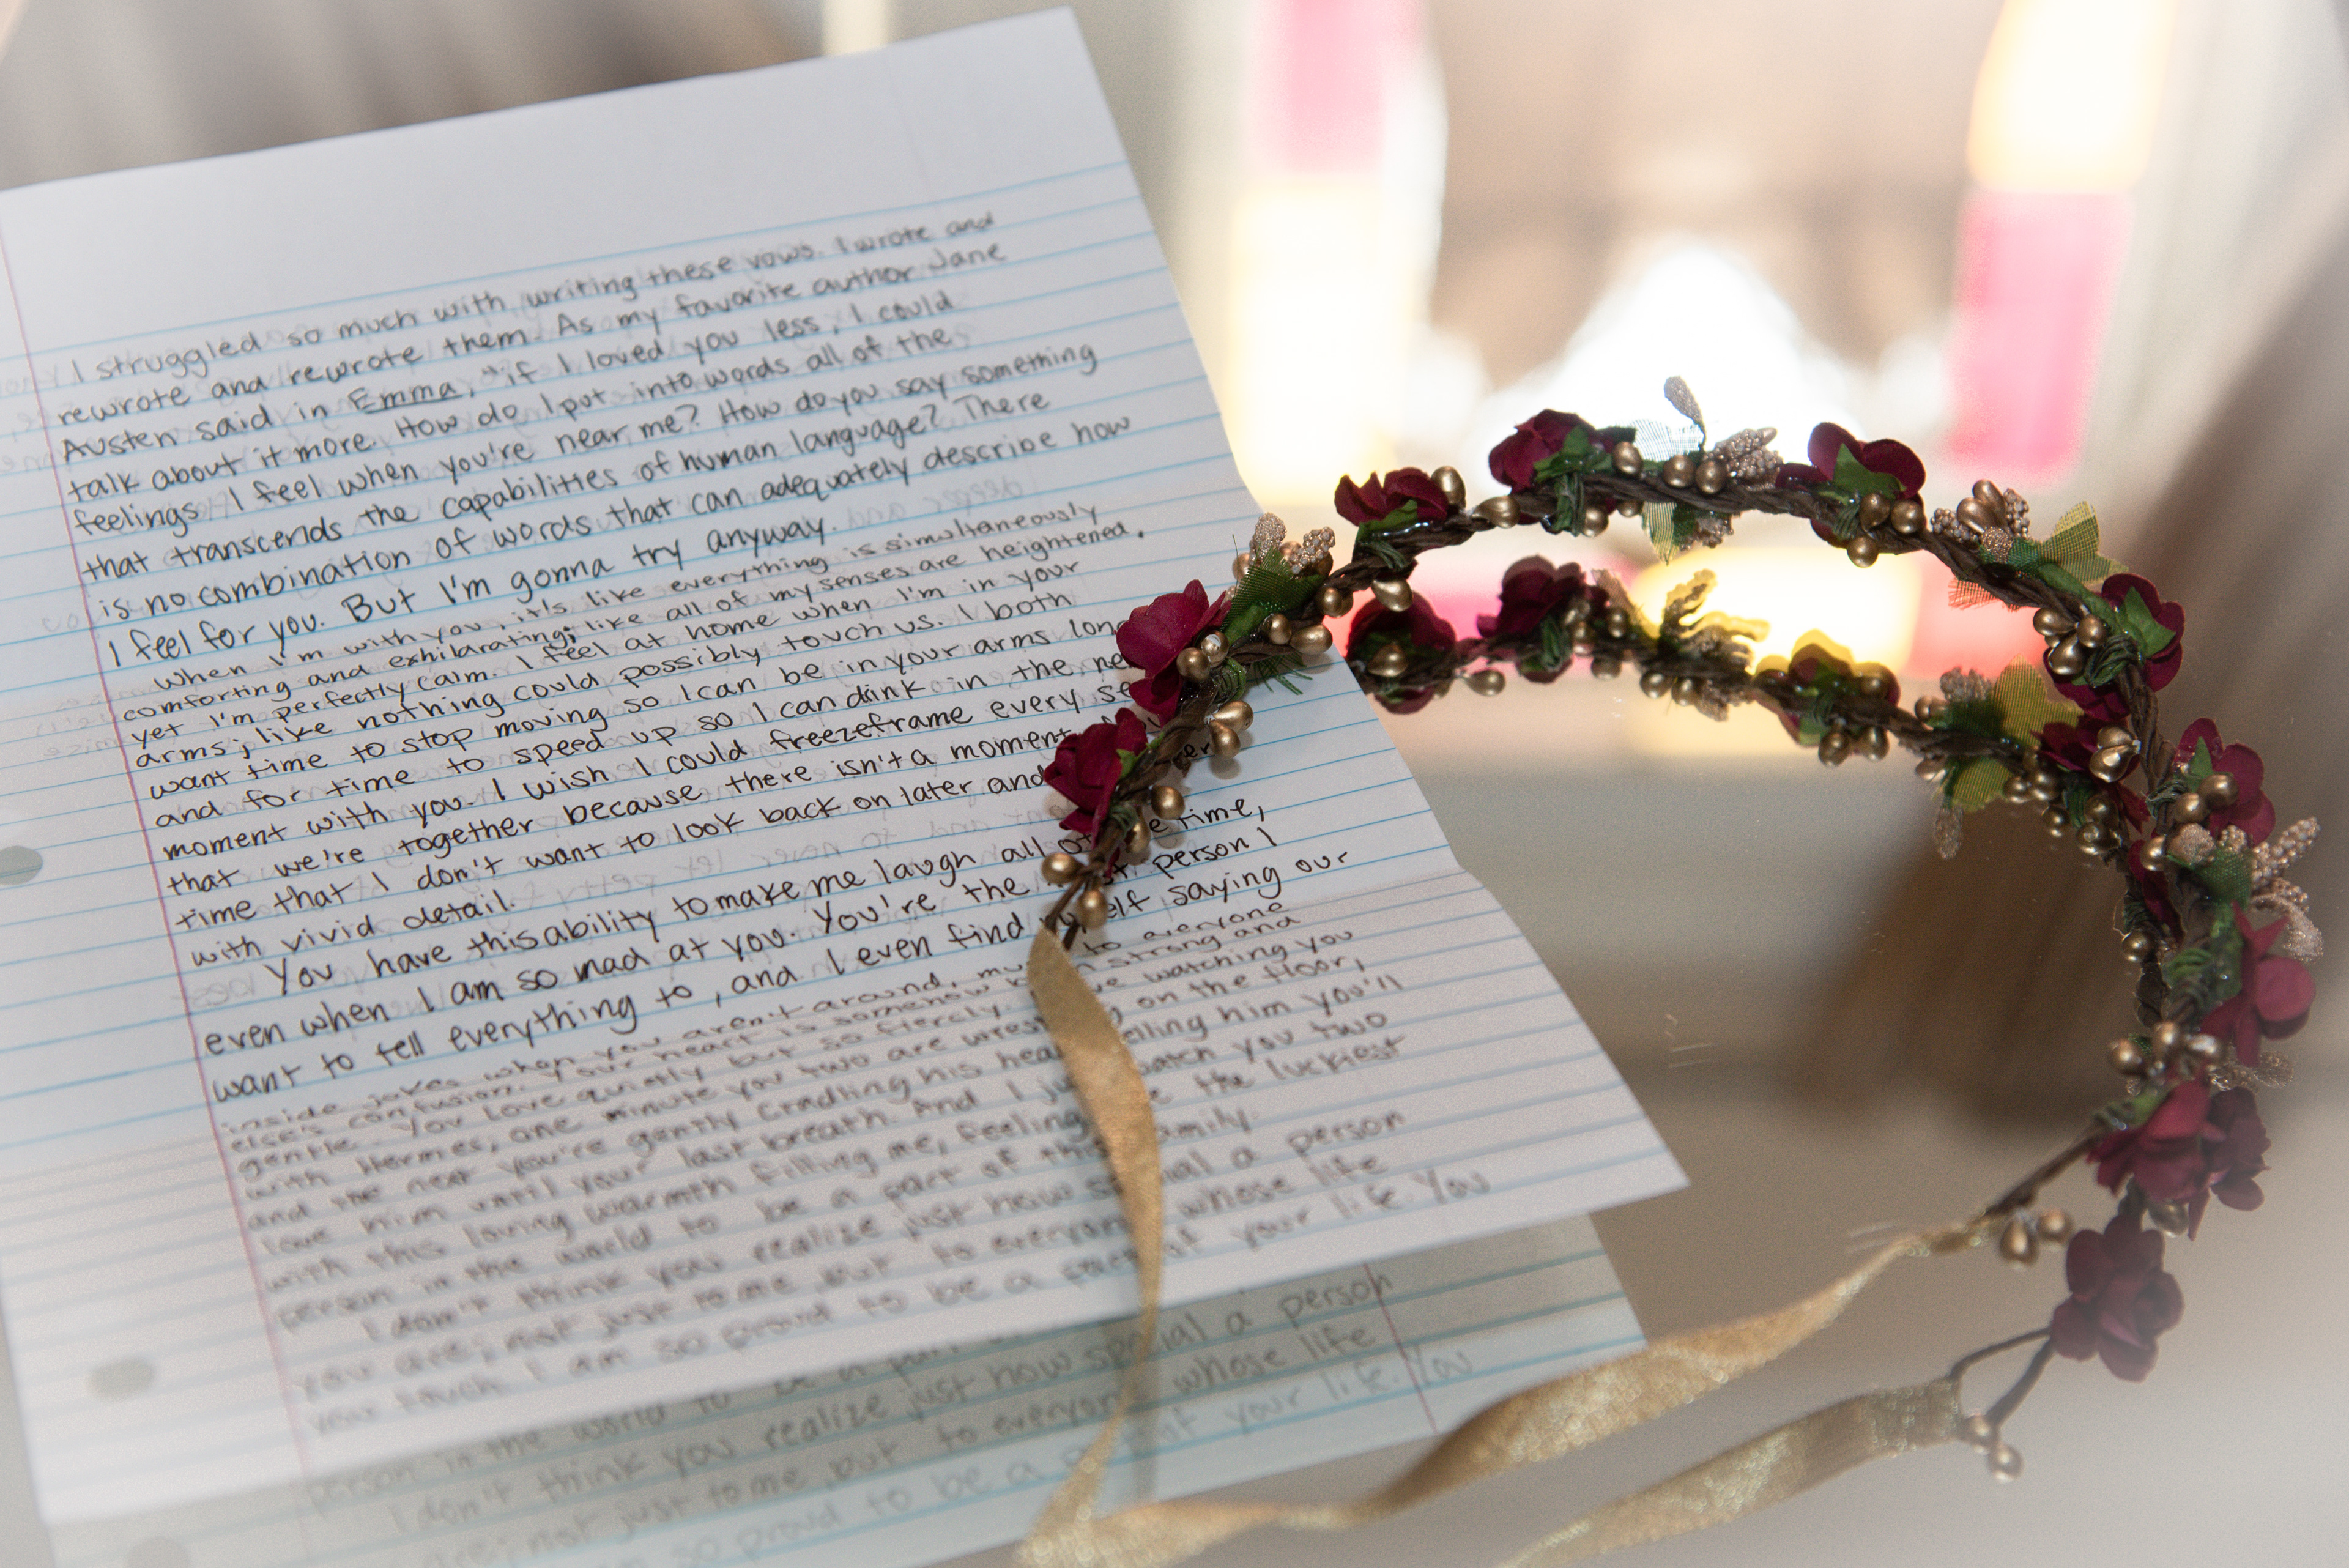 I struggled so much with writing these vows. I wrote and
rewrote and rewrote them. As my favorite author Jane
Austen said in Emma, "if I loved you less, I could
talk about it more. How do I put into words all of the
feelings I feel when you're near me? How do you say something
that transcends the capabilities of human language? There
is no combination of words that can adequately describe how
I feel for you. But I'm gonna try anyway.
When I'm with you, it's like everything is simultaneously
comforting and exhilarating; like all of my senses are heightened,
yet I'm perfectly calm. I feel at home when I'm in your
arms; like nothing could possibly touch us. I both
want time to stop moving so I can be in your arms
and for time to speed up so I can drink in the
moment with you. I wish I could freezeframe every
that we're together because there isn't a moment
time that I don't want to look back on later and
with vivid detail.
You have this ability to make me laugh all of time,
even when I am so mad at you. You're the person I
want to tell everything to, and I even find myself saying our
inside jokes when you aren't around, to everyone
else's confusion. Your heart is somehow strong and
gentle. You love quietly but so fiercely. watching you
with Hermes, one minute you two are on the floor,
and the next you're gently cradling his head telling him you'll
love him until your last breath. And I just watch you two
with this loving warmth filling me, feeling the luckiest
person in the world to be a part of this family.
I don't think you realize just how special a person
you are; not just to me, but to everyone whose life
you touch. I am so proud to be a part of your life. You
person in the world to be a
I don't think you realize just how special a person
are; not just to me, but to everyone whose life
so proud to be a of your life. You